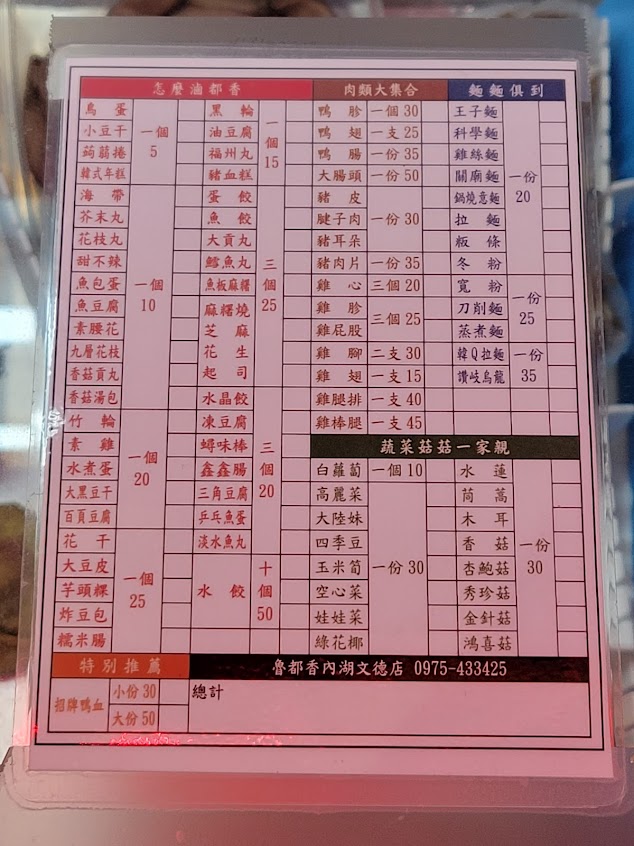 怎麼滷都香
鳥蛋
小豆干
蒟蒻捲
韓式年糕
一個 5
海帶
芥末丸
花枝丸
甜不辣
魚包蛋
魚豆腐
素腰花
九層花枝
香菇貢丸
香菇湯包
一個 10
竹輪
素雞
水煮蛋
大黑豆干
百頁豆腐
一個 20
花干
大豆皮
芋頭粿
炸豆包
糯米腸
一個 25
黑輪
油豆腐
福州丸
豬血糕
一個 15
蛋餃
魚餃
大貢丸
鱈魚丸
魚板麻糬
麻糬燒
芝麻
花生
起司
三個 25
水晶餃
凍豆腐
蟳味棒
鑫鑫腸
三角豆腐
乒乓魚蛋
淡水魚丸
三個 20
水餃
十個 50
肉類大集合
鴨胗 一個 30
鴨翅 一支 25
鴨腸 一份 35
大腸頭 一份 50
豬皮
腱子肉
豬耳朵
一份 30
豬肉片 一份 35
雞心 三個 20
雞胗
雞屁股
三個 25
雞腳 二支 30
雞翅 一支 15
雞腿排 一支 40
雞棒腿 一支 45
麵麵俱到
王子麵
科學麵
雞絲麵
關廟麵
鍋燒意麵
拉麵
粄條
冬粉
一份 20
寬粉
刀削麵
蒸煮麵
一份 25
韓Q拉麵
讚岐烏龍
一份 35
蔬菜菇菇一家親
白蘿蔔 一個 10
高麗菜
大陸妹
四季豆
玉米筍
空心菜
娃娃菜
綠花椰
一份 30
水蓮
茼蒿
木耳
香菇
杏鮑菇
秀珍菇
金針菇
鴻喜菇
一份 30
特別推薦
招牌鴨血
小份 30
大份 50
魯都香內湖文德店 0975-433425
總計